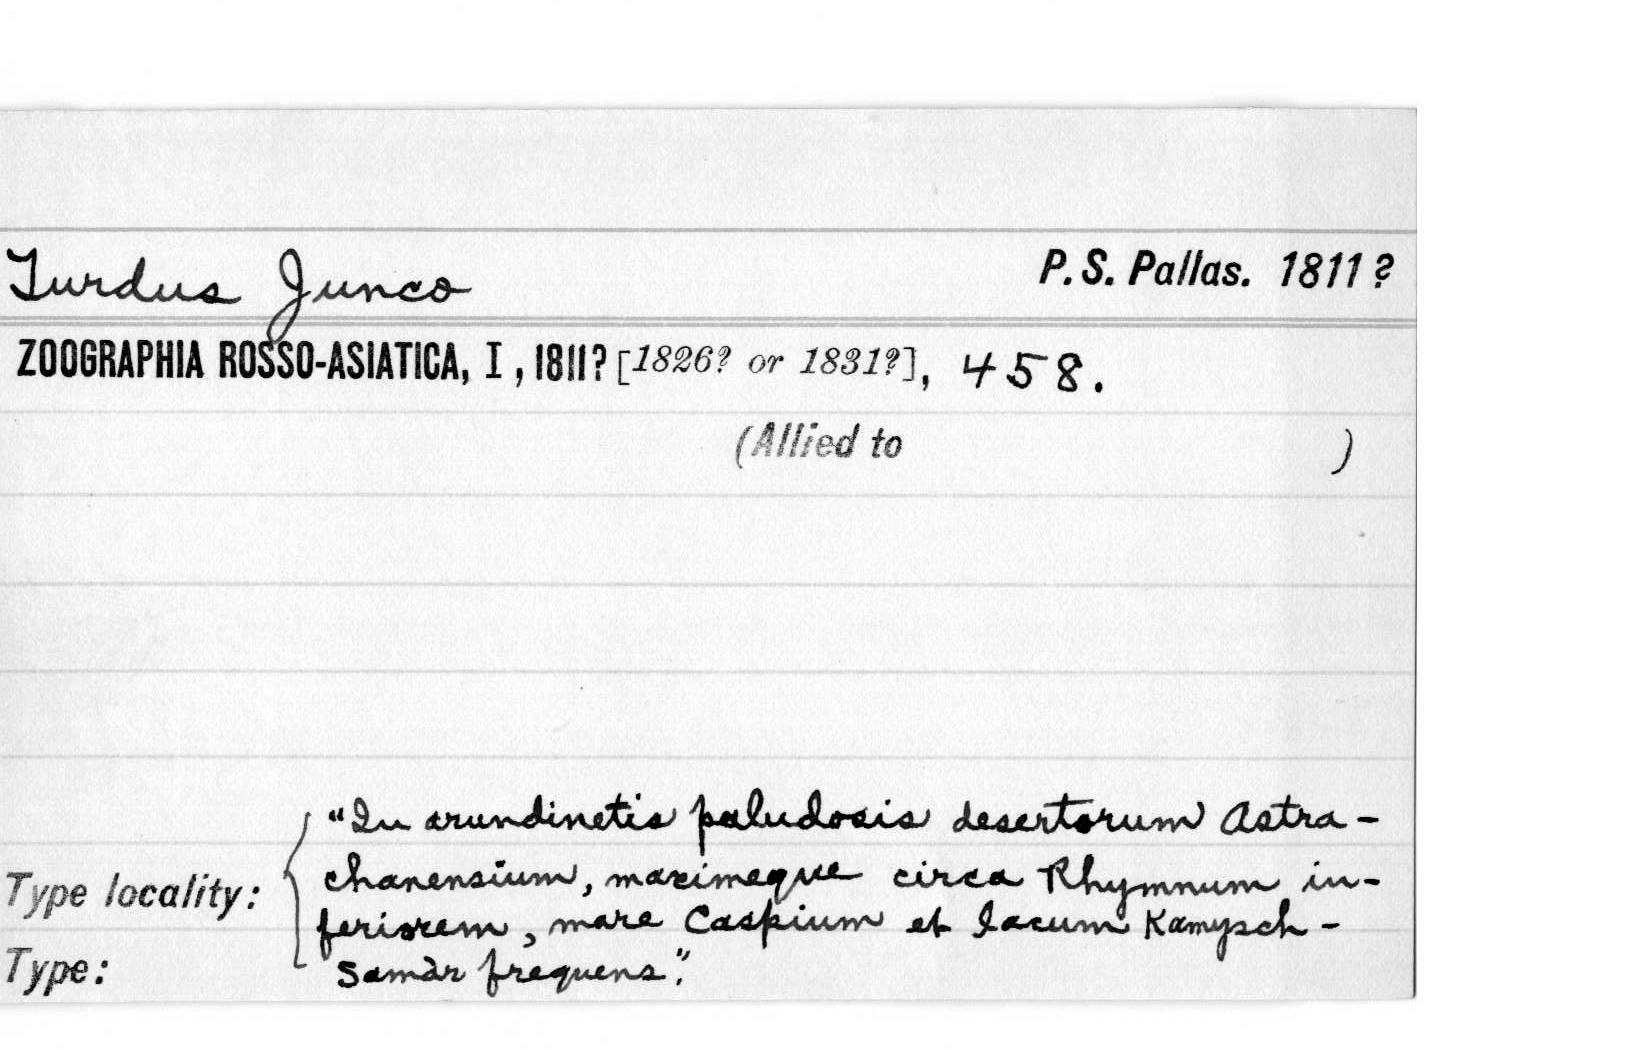 Turdus Junco P. S. Pallas. 1811?
ZOOGRAPHIA ROSSO-ASIATICA, I, 1811? [1826? or 1831?], 458.
(Allied to )
"In arundinetis paludosis desertorum Astra-
chanensium, maximeque circa Rhymnum in-
Type locality:
feriorem, mare Caspium et lacum Kamysch-
Type:
Samàr frequens."